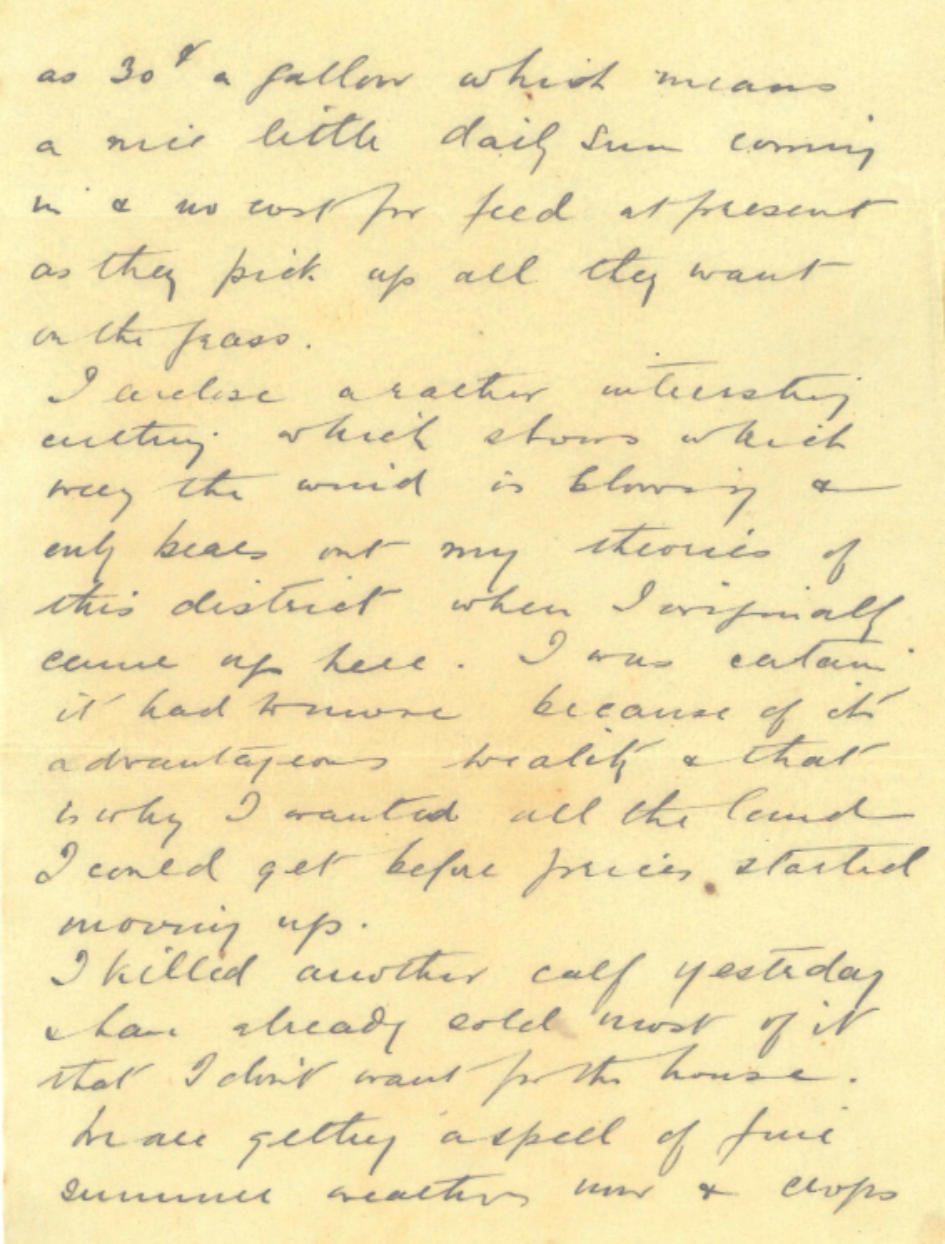 as 30 a gallon which means
a nice little daily sum coming
in & no cost for feed at present
as they pick up all they want
on the grass.
I enclose a rather interesting
cutting which shows which
way the wind is blowing &
only bears out my theories of
this district when I originally
came up here. I was certain
it had to move because of its
advantageous locality & that
is why I wanted all the land
I could get before prices started
moving up.
I killed another calf yesterday
& have already sold most of it
that I don't want for the house.
We are getting a spell of fine
summer weather now & crops